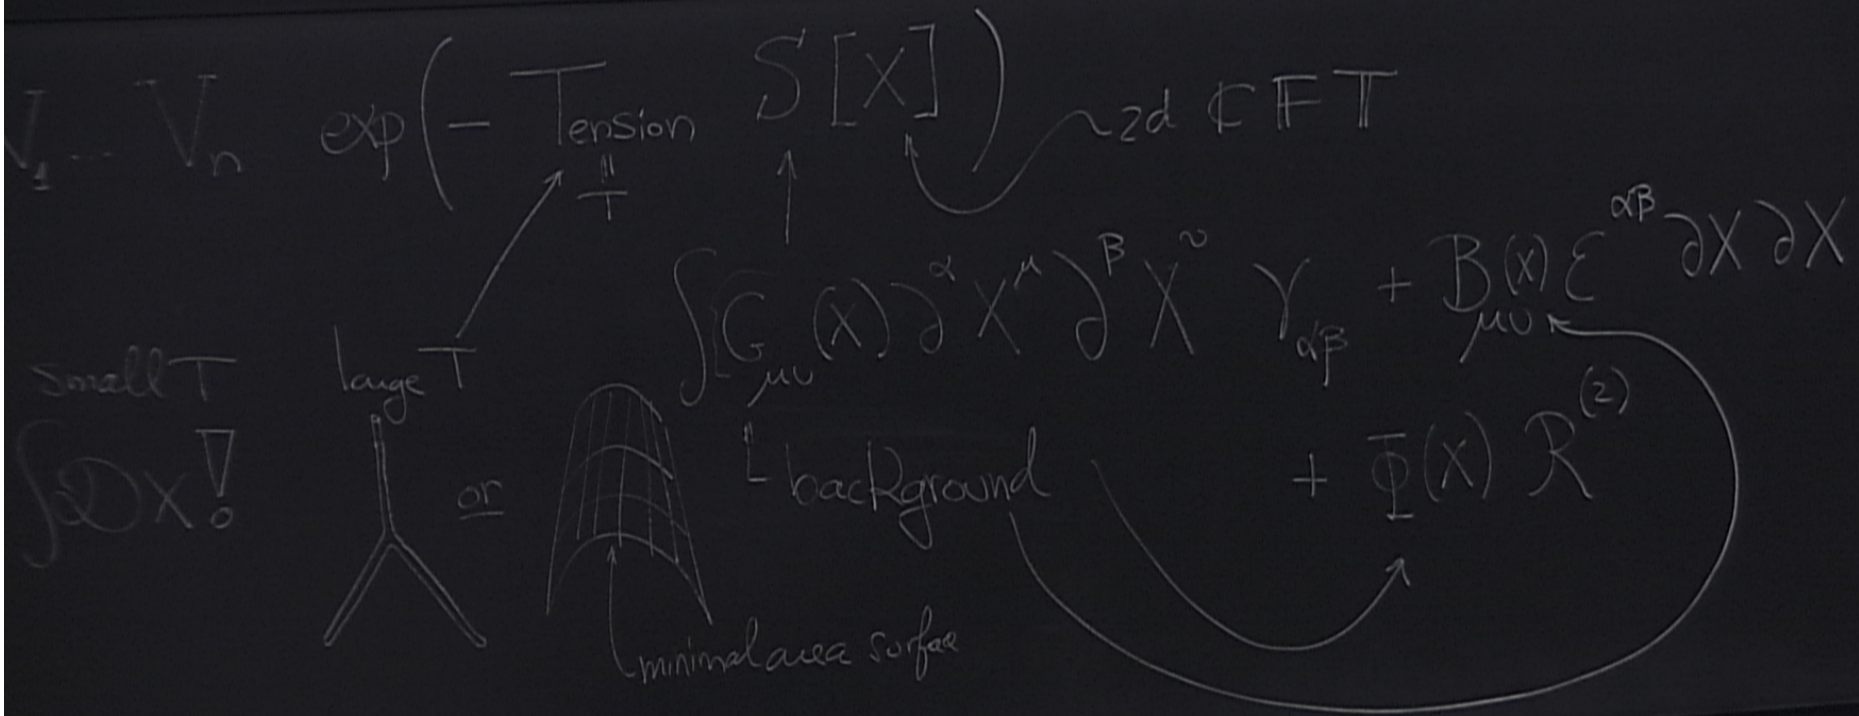 V₁ ... Vₙ exp(− Tension S[X]) ~2d CFT
= T
∫{G_μν(X) ∂^α X^μ ∂^β X^ν γ_αβ + B_μν(X) ε^αβ ∂X ∂X
small T large T
+ Φ(X) R^(2)
∫DX! or background
minimal area surface